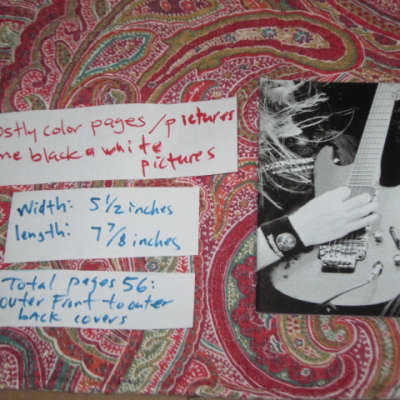 ostly color pages / pictures
me black & white
pictures
Width: 5 1/2 inches
length: 7 7/8 inches
Total pages 56:
outer Front to outer
back covers